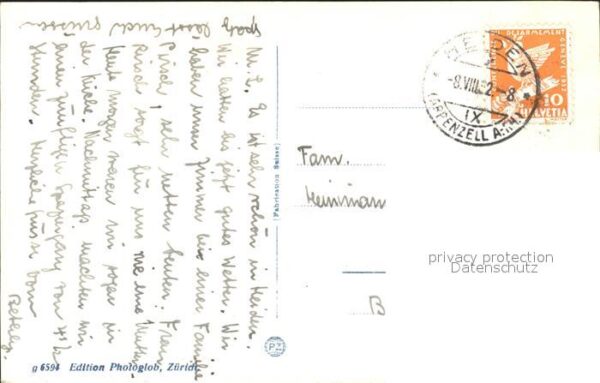 M. L. Es ist sehr schön in Heiden.
Wir hatten bis jetzt gutes Wetter. Wir
haben unser Zimmer bei einer Familie
Pirsch, sehr netten Leuten. Frau
Pirsch sorgt für uns wie eine Mutter.
Heute morgen waren wir sogar in
der Kirche. Nachmittags machten wir
einen zünftigen Spaziergang von 4½
Stunden. Herzliche Grüsse vom
Bethly.
lässt Euch grüssen
g 6594 Edition Photoglob, Zürich
(Fabrication Suisse)
PZ
Fam.
Heiniman
B
HEIDEN
-8.VIII. 2-8
IX
(APPENZELL A.RH.)
DÉSARMEMENT
GENÈVE 1932
10
HELVETIA
privacy protection
Datenschutz